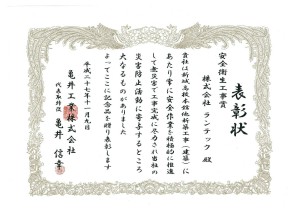 表彰状
安全衛生工事賞
株式会社 ランテック 殿
貴社は新城高校本館他新築工事(建築)に
あたり常に安全作業を積極的に推進
して無災害で工事完成に尽力され当社の
災害防止活動に寄与するところ
大なるものがありました
よってここに記念品を贈り表彰します
平成二十七年十一月九日
亀井工業株式会社
代表取締役 亀井 信幸